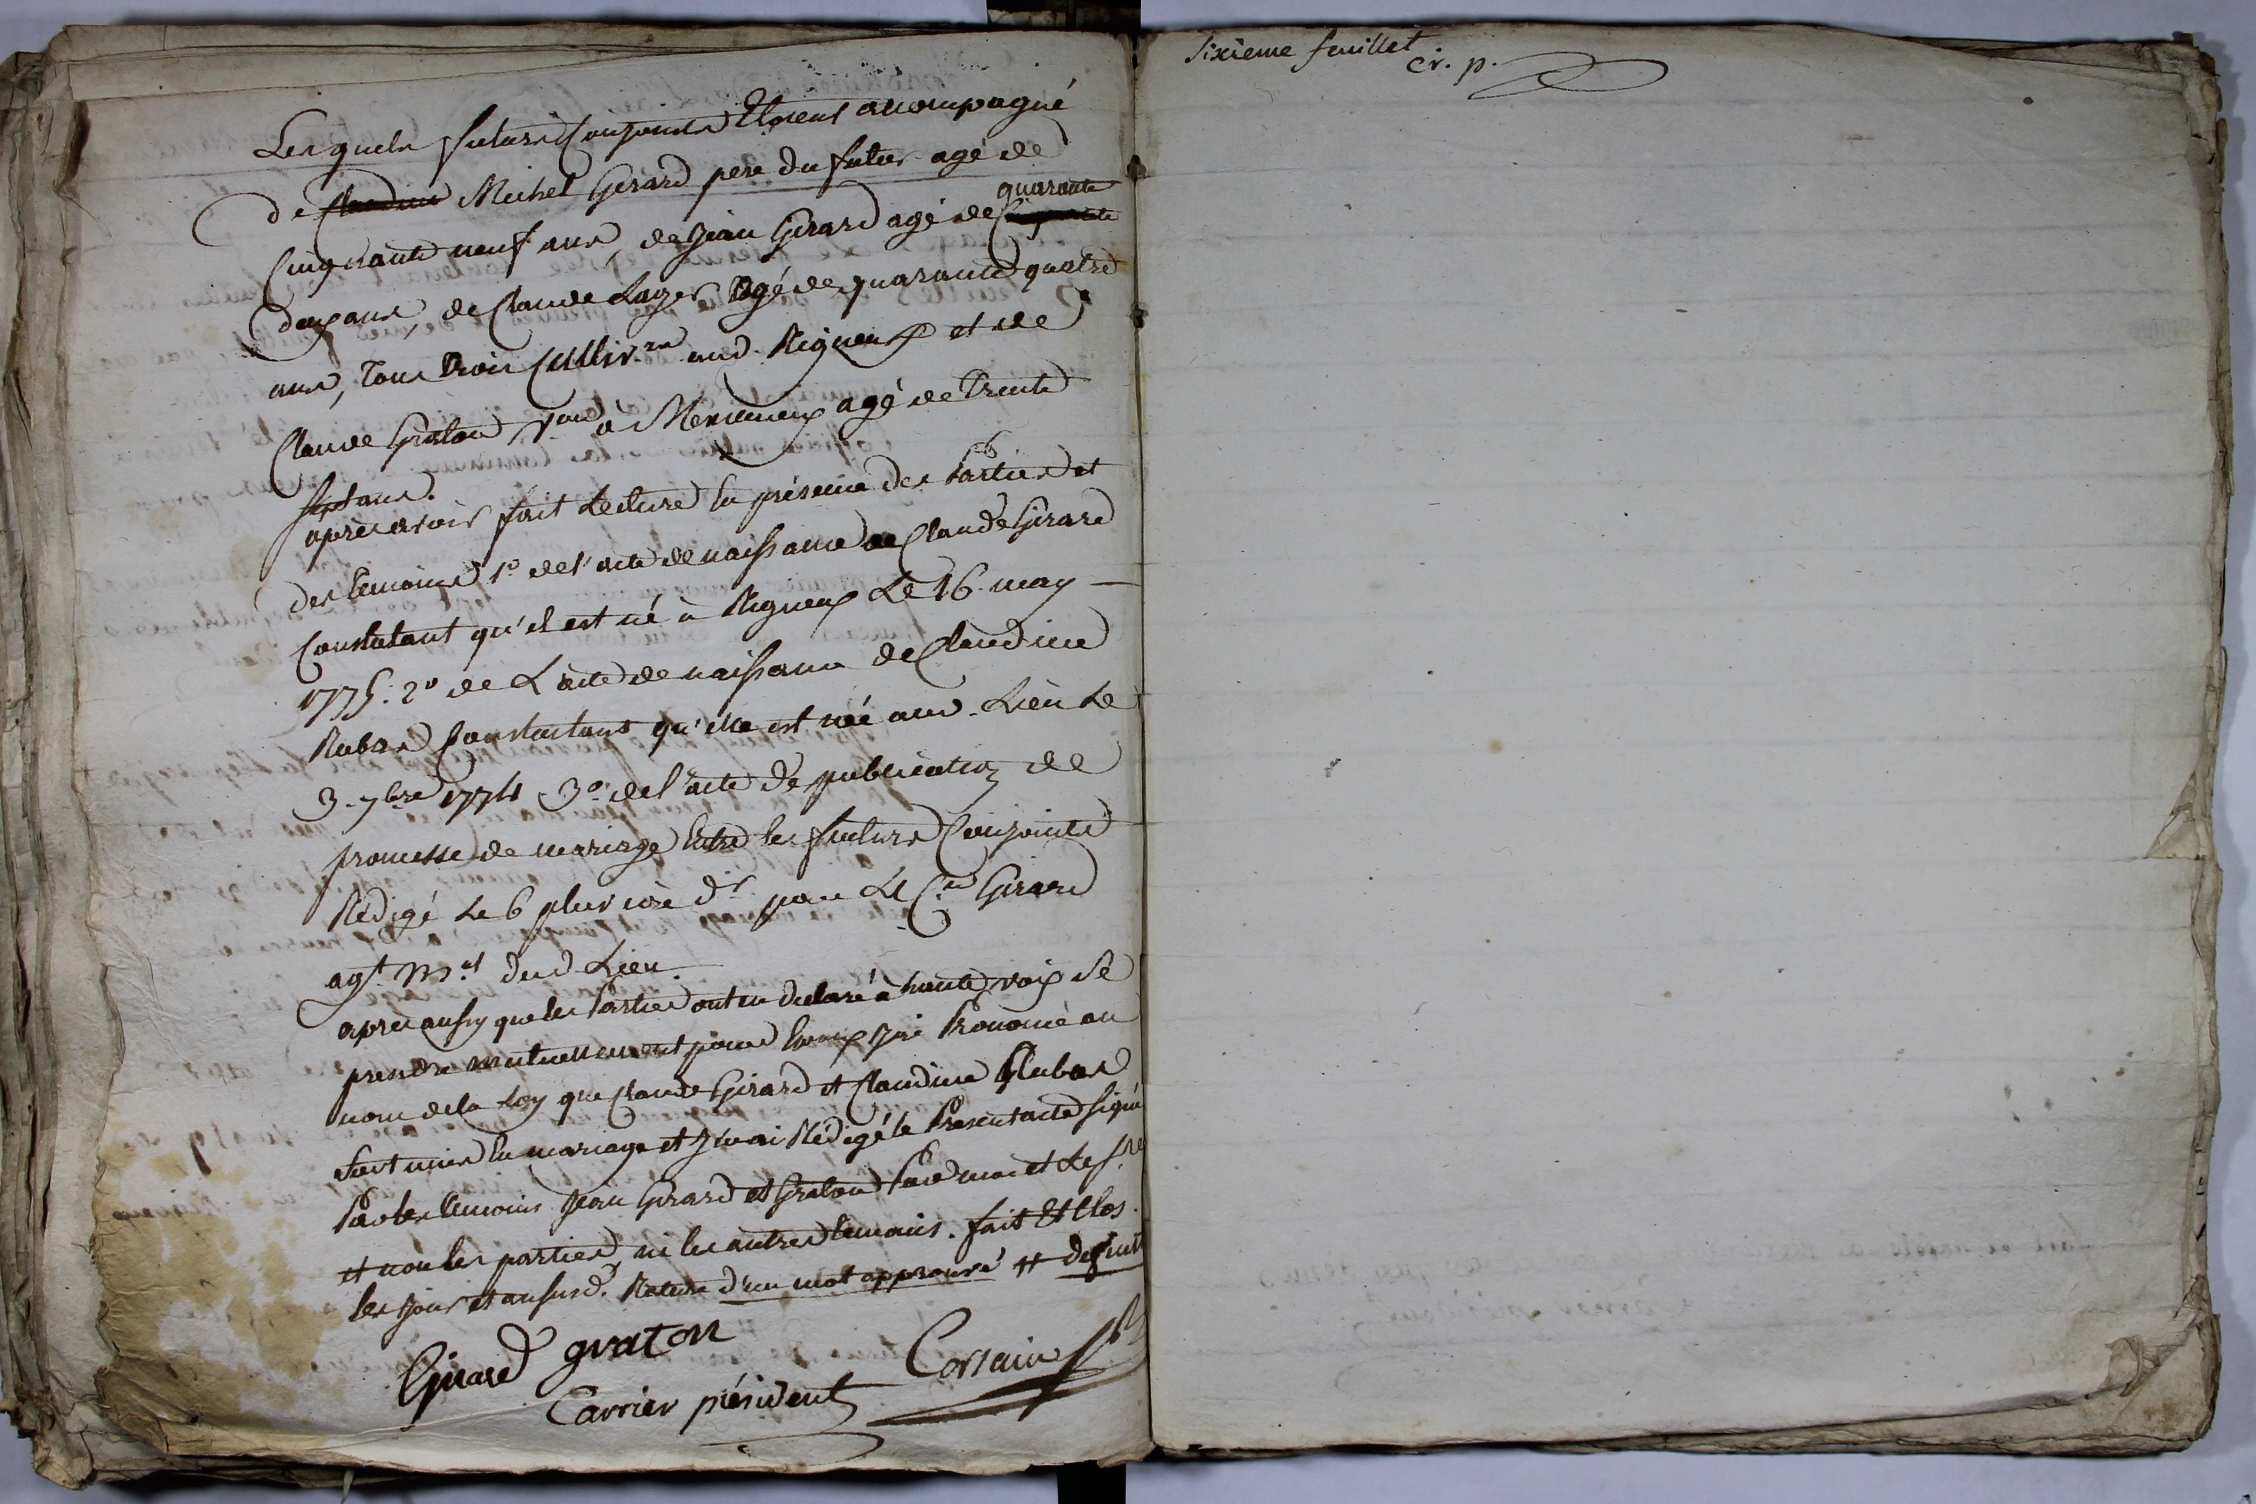 Lesquels futurs Conjoints Etoient accompagné
de Claudine Michel Girard pere du futur agé de
Cinquante neuf ans, de Jean Girard agé de quarante
deux ans, de Claude Layer agé de quarante quatre
ans, Tous trois Cultiv.rs aud. Rigneux et de
Claude Graton à Meximieux agé de Trente
sept ans.
après avoir fait Lecture En présence des Parties et
des temoins 1.o de l'acte de naissance de Claude Girard
Constatant qu'il est né à Rigneux Le 16. may
1775. 2.o de L'acte de naissance de Claudine
Rubas Constatant qu'elle est née aud. Lieu Le
3. 7bre 1774. 3.o de l'acte de publication de
promesse de mariage Entre les futurs Conjoints
Rédigé Le 6 pluviose d.r par Le C.en Girard
ag.t m.al dud Lieu.
apres aussy que les Parties ont eu declaré à haute voix Se
prendre mutuellement pour Epoux j'ai Prononcé au
nom de la Loy que Claude Girard et Claudine Rubas
sont unis En mariage et j'en ai Rédigé le Present acte signé
Par les temoins Jean Girard et Graton Par moi et Le s.re
et non les parties ni les autres temoins. fait Et Clos
les jour et an susd. Rature d'un mot approuvé
Girard graton
Corsain
Carrier président
Sixieme feuillet
cr. p.